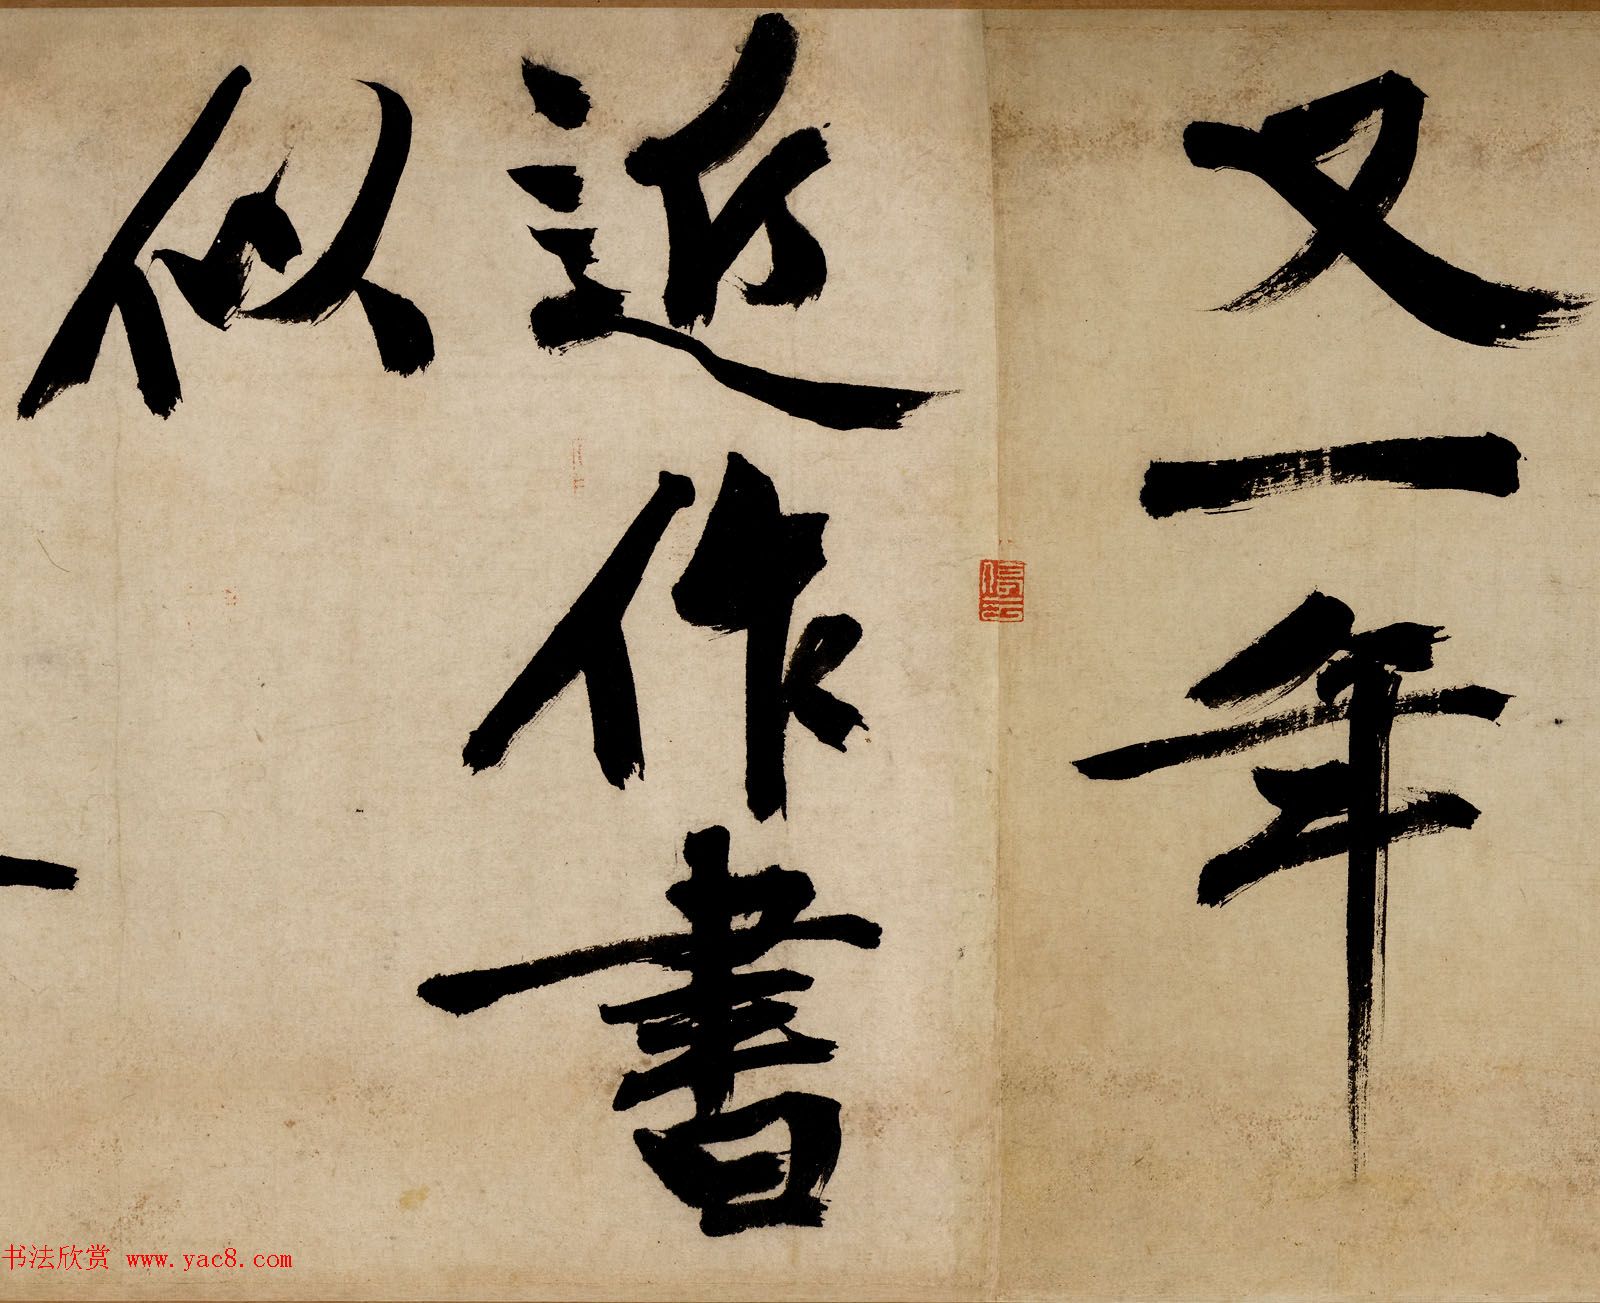 又一年
近作書
似
书法欣赏 www.yac8.com